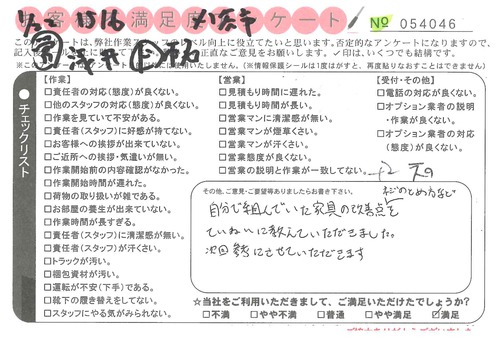 お客様満足度アンケート
№ 054046
このアンケートは、弊社作業スタッフのレベル向上に役立てたいと思います。否定的なアンケートになりますので、
正直なご意見をお願いします。✓印は、いくつでも結構です。
(情報保護シールは1度はがすと、再度貼りなおすことはできません)
チェックリスト
【作業】
□責任者の対応(態度)が良くない。
□他のスタッフの対応(態度)が良くない。
□作業を見ていて不安がある。
□責任者(スタッフ)に好感が持てない。
□お客様への挨拶が出来ていない。
□ご近所への挨拶・気遣いが無い。
□作業開始前の内容確認がなかった。
□作業開始時間が遅れた。
□荷物の取り扱いが雑である。
□お部屋の養生が出来ていない。
□作業時間が長すぎる。
□責任者(スタッフ)に清潔感が無い。
□責任者(スタッフ)が汗くさい。
□トラックが汚い。
□梱包資材が汚い。
□運転が不安(下手)である。
□靴下の履き替えをしてない。
□スタッフにやる気がみられない。
【営業】
□見積もり時間に遅れた。
□見積もり時間が長い。
□営業マンに清潔感が無い。
□営業マンが煙草くさい。
□営業マンが汗くさい。
□営業態度が良くない。
□営業の説明と作業が一致してない。
【受付・その他】
□電話の対応が良くない。
□オプション業者の説明
・作業が良くない。
□オプション業者の対応
(態度)が良くない。
その他、ご意見・ご要望等ありましたらお書き下さい。
ネジのとめ方など
自分で組んでいた家具の改善点を
ていねいに教えていただきました。
次回参考にさせていただきます
☆当社をご利用いただきまして、ご満足いただけたでしょうか?
□不満 □やや不満 □普通 □やや満足 ☑満足